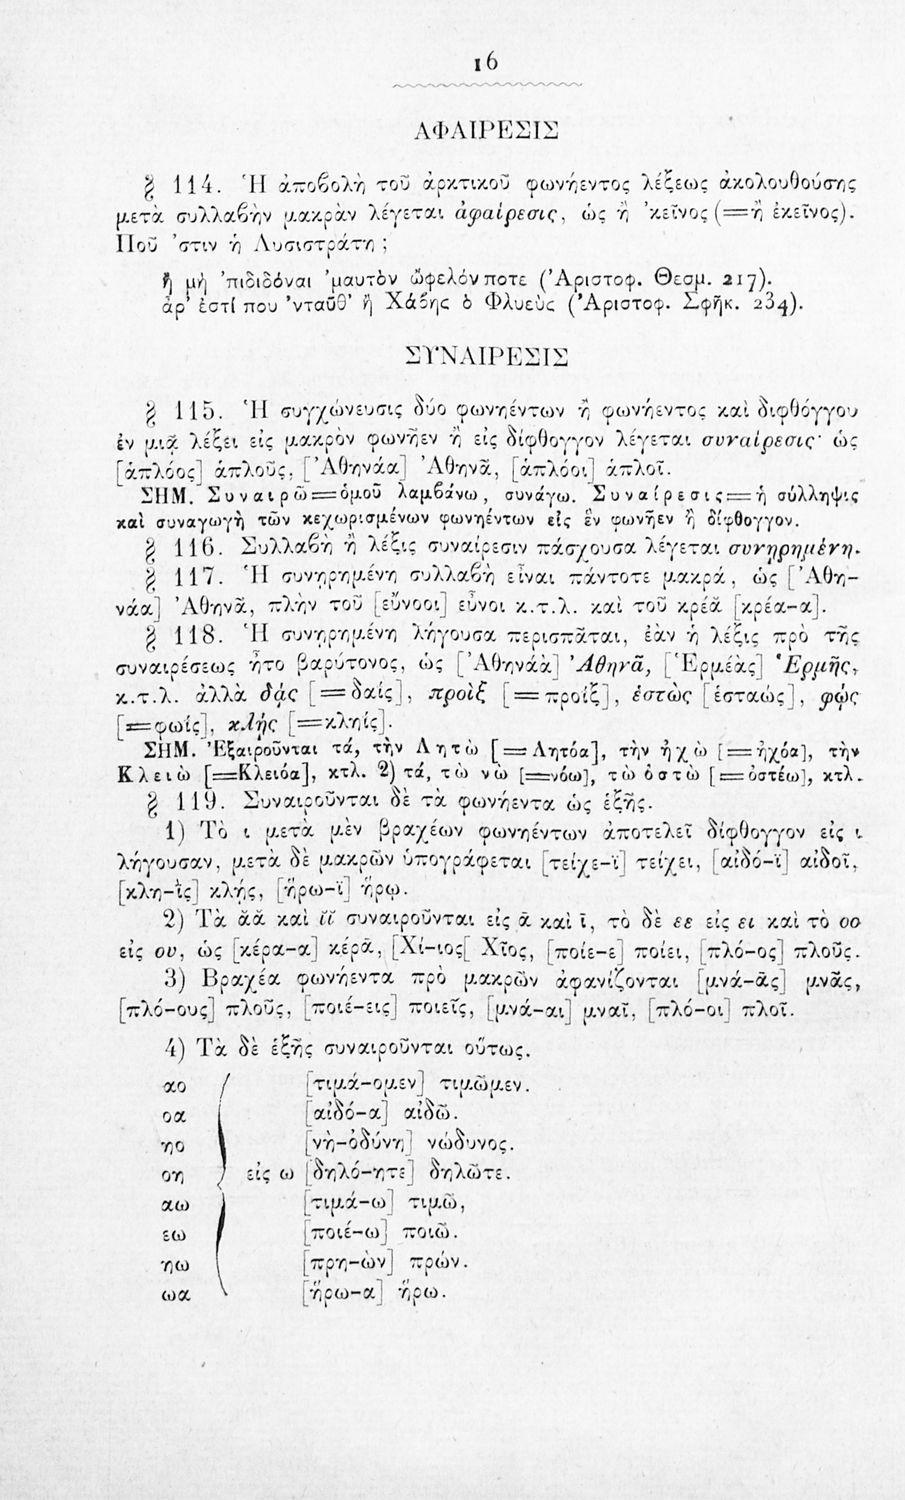 16
ΑΦΑΙΡΕΣΙΣ
§ 114. Ἡ ἀποβολὴ τοῦ ἀρκτικοῦ φωνήεντος λέξεως ἀκολουθούσης
μετὰ συλλαβὴν μακρὰν λέγεται ἀφαίρεσις, ὡς ἢ 'κεῖνος (=ἢ ἐκεῖνος).
Ποῦ 'στιν ἡ Λυσιστράτη ;
ἢ μὴ 'πιδιδόναι 'μαυτὸν ὤφελόν ποτε (Ἀριστοφ. Θεσμ. 217).
ἆρ' ἐστί που 'νταῦθ' ἢ Χάβης ὁ Φλυεὺς (Ἀριστοφ. Σφῆκ. 234).
ΣΥΝΑΙΡΕΣΙΣ
§ 115. Ἡ συγχώνευσις δύο φωνηέντων ἢ φωνήεντος καὶ διφθόγγου
ἐν μιᾷ λέξει εἰς μακρὸν φωνῆεν ἢ εἰς δίφθογγον λέγεται συναίρεσις· ὡς
[ἁπλόος] ἁπλοῦς, [Ἀθηνάα] Ἀθηνᾶ, [ἁπλόοι] ἁπλοῖ.
ΣΗΜ. Συναιρῶ=ὁμοῦ λαμβάνω, συνάγω. Συναίρεσις=ἡ σύλληψις
καὶ συναγωγὴ τῶν κεχωρισμένων φωνηέντων εἰς ἓν φωνῆεν ἢ δίφθογγον.
§ 116. Συλλαβὴ ἢ λέξις συναίρεσιν πάσχουσα λέγεται συνῃρημένη.
§ 117. Ἡ συνῃρημένη συλλαβὴ εἶναι πάντοτε μακρά, ὡς [Ἀθη-
νάα] Ἀθηνᾶ, πλὴν τοῦ [εὔνοοι] εὖνοι κ.τ.λ. καὶ τοῦ κρέᾰ [κρέα-α].
§ 118. Ἡ συνῃρημένη λήγουσα περισπᾶται, ἐὰν ἡ λέξις πρὸ τῆς
συναιρέσεως ἦτο βαρύτονος, ὡς [Ἀθηνάὰ] Ἀθηνᾶ, [Ἑρμέὰς] Ἑρμῆς,
κ.τ.λ. ἀλλὰ δᾴς [=δαίς], προὶξ [=προίξ], ἑστὼς [ἑσταώς], φῴς
[=φωίς], κλῄς [=κληίς].
ΣΗΜ. Ἐξαιροῦνται τά, τὴν Λητὼ [=Λητόα], τὴν ἠχὼ [=ἠχόα], τὴν
Κλειὼ [=Κλειόα], κτλ. 2) τά, τὼ νὼ [=νόω], τὼ ὀστὼ [=ὀστέω], κτλ.
§ 119. Συναιροῦνται δὲ τὰ φωνήεντα ὡς ἑξῆς.
1) Τὸ ι μετὰ μὲν βραχέων φωνηέντων ἀποτελεῖ δίφθογγον εἰς ι
λήγουσαν, μετὰ δὲ μακρῶν ὑπογράφεται [τείχε-ϊ] τείχει, [αἰδό-ϊ] αἰδοῖ,
[κλη-ῒς] κλῄς, [ἥρω-ϊ] ἥρῳ.
2) Τὰ ᾰᾰ καὶ ῐῐ συναιροῦνται εἰς ᾱ καὶ ῑ, τὸ δὲ εε εἰς ει καὶ τὸ οο
εἰς ου, ὡς [κέρα-α] κέρᾱ, [Χί-ιος[ Χῖος, [ποίε-ε] ποίει, [πλό-ος] πλοῦς.
3) Βραχέα φωνήεντα πρὸ μακρῶν ἀφανίζονται [μνά-ᾱς] μνᾶς,
[πλό-ους] πλοῦς, [ποιέ-εις] ποιεῖς, [μνά-αι] μναῖ, [πλό-οι] πλοῖ.
4) Τὰ δὲ ἑξῆς συναιροῦνται οὕτως.
αο [τιμά-ομεν] τιμῶμεν.
οα [αἰδό-α] αἰδῶ.
ηο [νὴ-ὀδύνη] νώδυνος.
οη εἰς ω [δηλό-ητε] δηλῶτε.
αω [τιμά-ω] τιμῶ,
εω [ποιέ-ω] ποιῶ.
ηω [πρη-ὼν] πρών.
ωα [ἥρω-α] ἥρω.